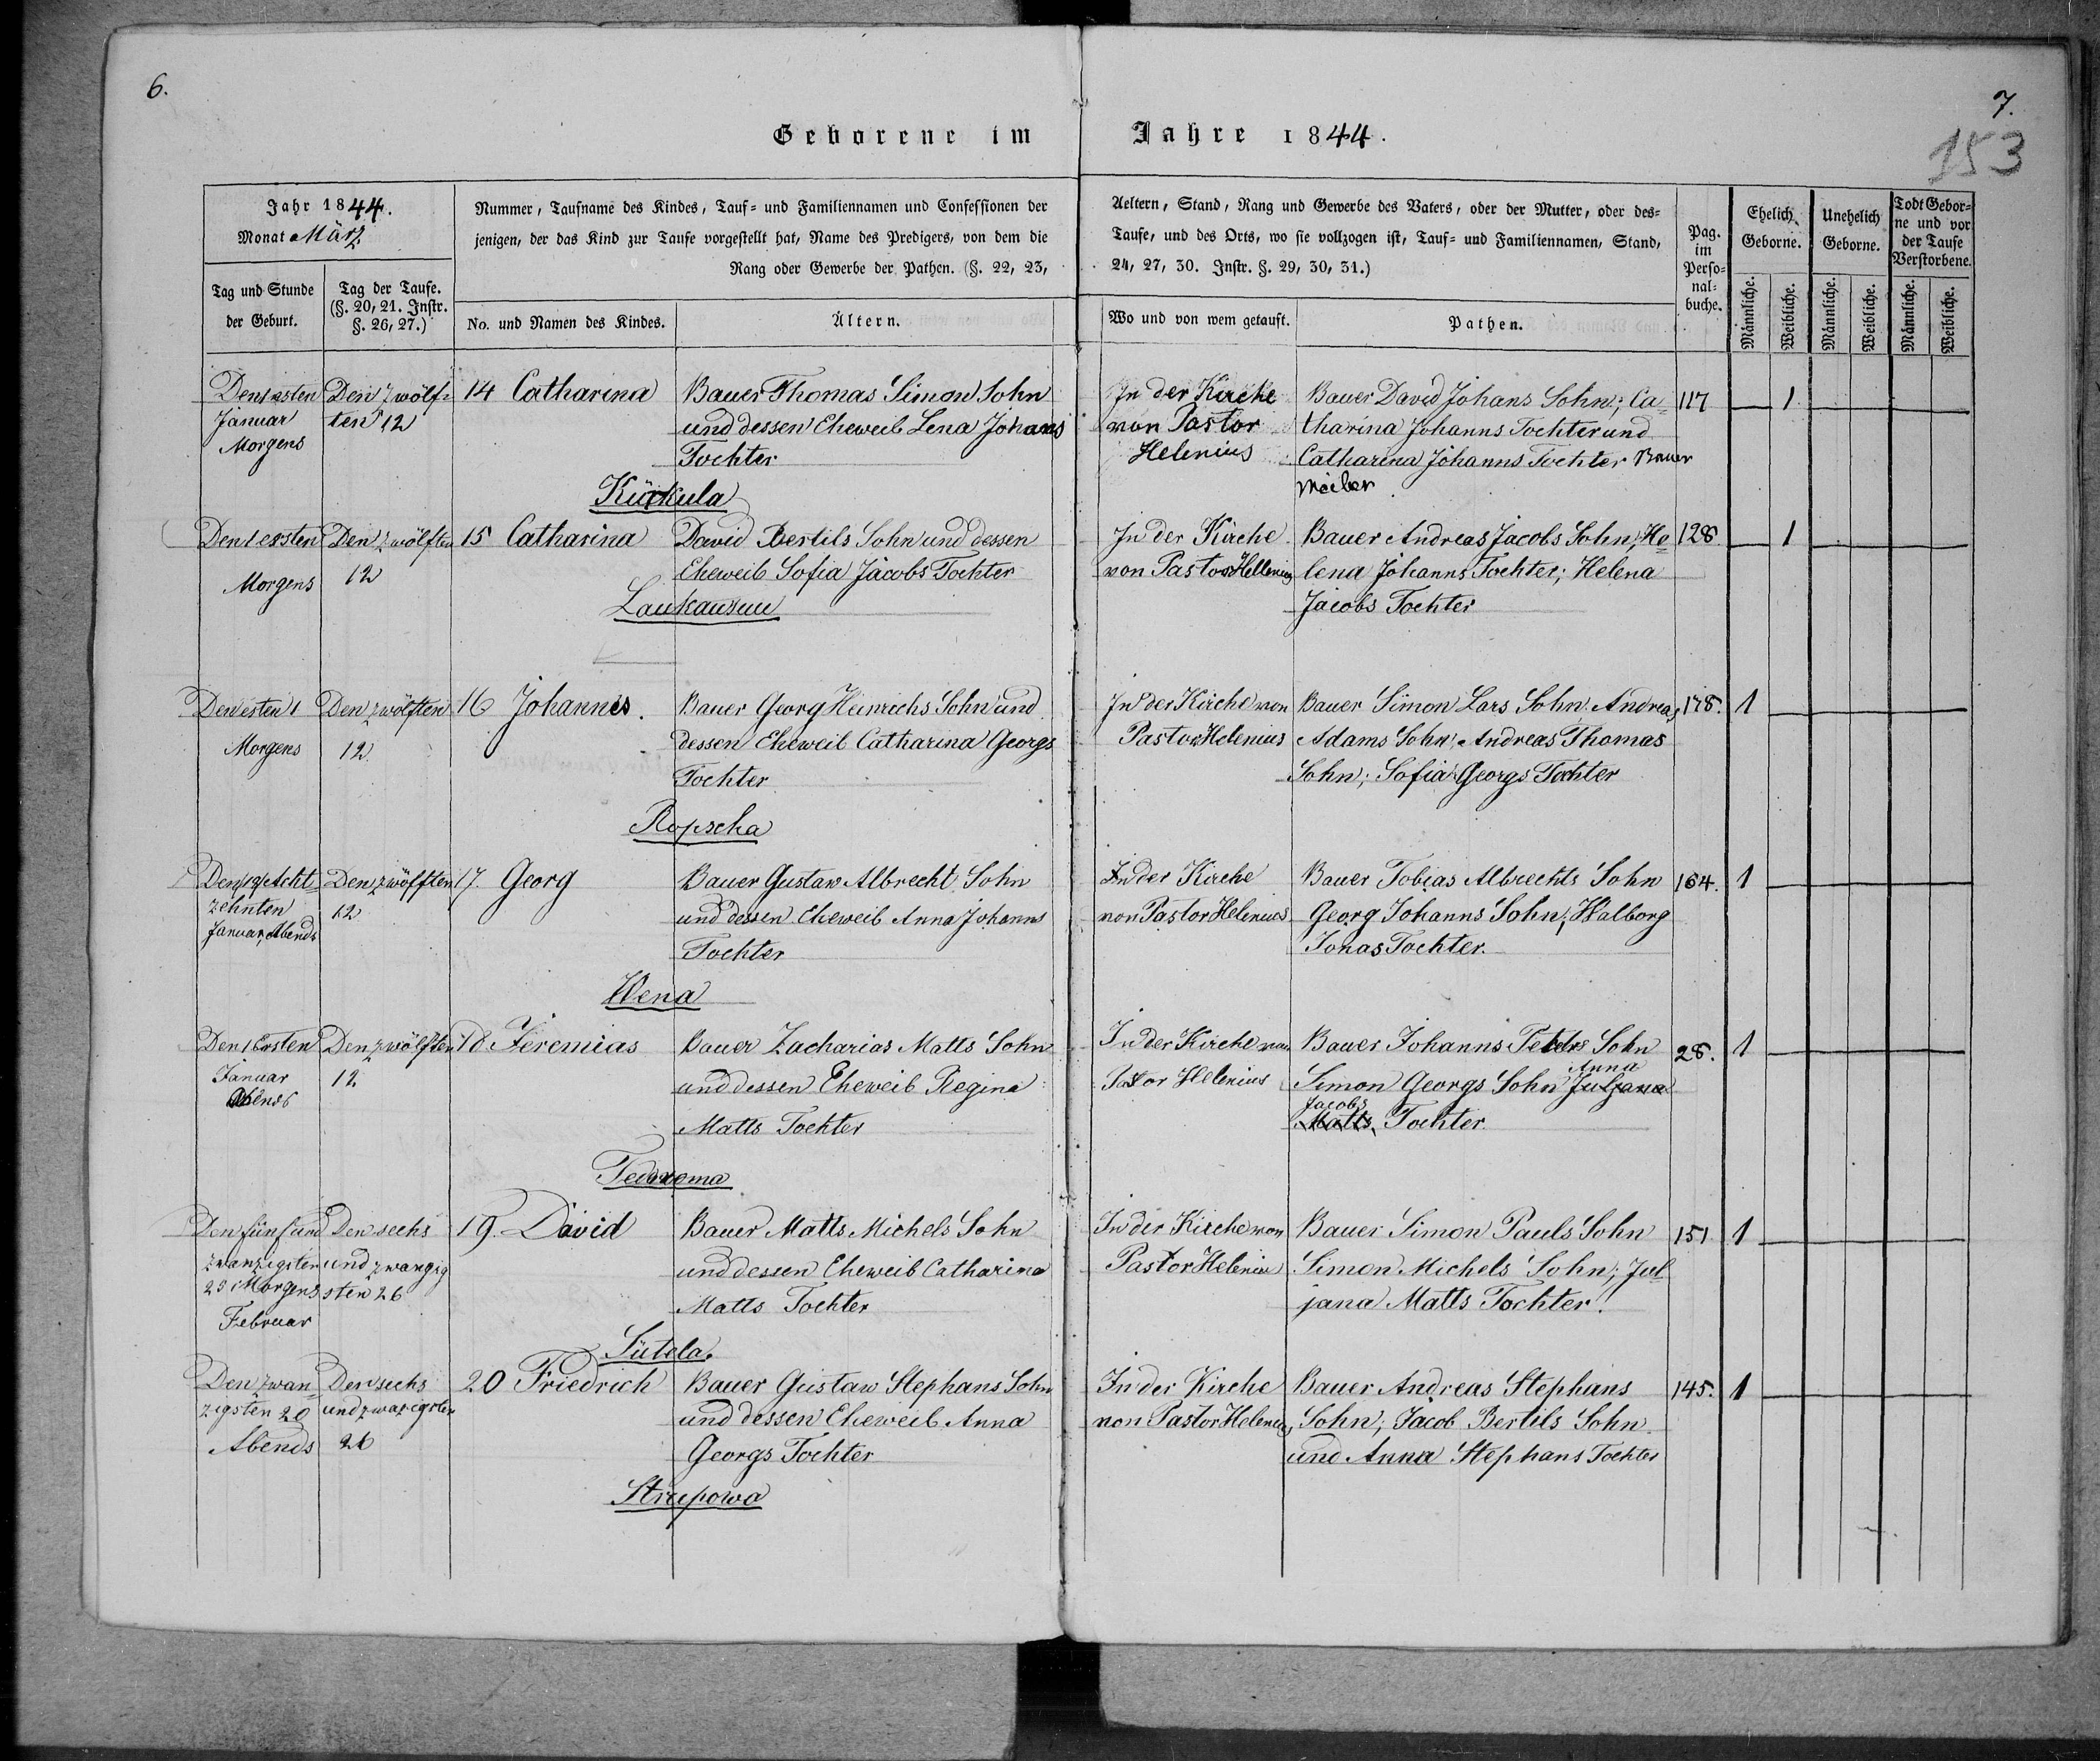 6.
7.
153
Geborene im Jahre 1844.
Jahr 1844.
Monat März.
Nummer, Taufname des Kindes, Tauf- und Familiennamen und Confessionen der Aeltern, Stand, Rang und Gewerbe des Vaters, oder der Mutter, oder des-
jenigen, der das Kind zur Taufe vorgestellt hat, Name des Predigers, von dem die Taufe, und des Orts, wo sie vollzogen ist, Tauf- und Familiennamen, Stand,
Rang oder Gewerbe der Pathen. (§. 22, 23, 24, 27, 30. Instr. §. 29, 30, 31.)
Tag und Stunde
der Geburt.
Tag der Taufe.
(§. 20, 21. Instr.
§. 26, 27.)
No. und Namen des Kindes.
Ältern.
Wo und von wem getauft.
Pathen.
Pag.
im
Perso-
nal-
buche.
Ehelich
Geborne.
Unehelich
Geborne.
Todt Gebor-
ne und vor
der Taufe
Verstorbene.
Männliche.
Weibliche.
Männliche.
Weibliche.
Männliche.
Weibliche.
Den 1 ersten
Januar
Morgens
Den zwölf-
ten 12
14 Catharina
Bauer Thomas Simon Sohn
und dessen Eheweib Lena Johans
Tochter
In der Kirche
von Pastor
Helenius
Bauer David Johans Sohn; Ca-
tharina Johanns Tochter und
Catharina Johanns Tochter Bauer
weiber
117
1
Kiäkula
Den 1 ersten
Morgens
Den zwölften
12
15 Catharina
David Bertils Sohn und dessen
Eheweib Sofia Jacobs Tochter
In der Kirche
von Pastor Hellenius
Bauer Andreas Jacobs Sohn; He-
lena Johanns Tochter; Helena
Jacobs Tochter
128.
1
Den esten 1
Morgens
Den zwölften
12.
16 Johannes.
Bauer Georg Heinrichs Sohn und
dessen Eheweib Catharina Georgs
Tochter
In der Kirche von
Pastor Helenius
Bauer Simon Lars Sohn; Andreas
Adams Sohn; Andreas Thomas
Sohn; Sofia Georgs Tochter
178.
1
Ropscha
Den 19 Acht
zehnten
Januar, Abends
Den zwöfften
12
17. Georg
Bauer Gustaw Albrecht Sohn
und dessen Eheweib Anna Johanns
Tochter
In der Kirche
von Pastor Helenius
Bauer Tobias Albrechts Sohn
Georg Johanns Sohn; Walborg
Jonas Tochter.
164.
1
Wena
Den 1 Ersten
Januar
Abends
Den zwölften
12
18. Jeremias
Bauer Zacharias Matts Sohn
und dessen Eheweib Regina
Matts Tochter
In der Kirche von
Pastor Helenius
Bauer Johanns Peters Sohn
Anna
Simon Georgs Sohn Juljana
Jacobs
Matts Tochter
28.
1
Den fünfund
zwanzigsten
25 Morgens
Februar
Den sechs
und zwanzig
sten 26
19. David
Bauer Matts Michels Sohn
und dessen Eheweib Catharina
Matts Tochter
In der Kirche von
Pastor Helenius
Bauer Simon Pauls Sohn
Simon Michels Sohn; Jul
jana Matts Tochter.
151
1
Sütela.
Den zwan
zigsten 20
Abends
Den sechs
und zwazigsten
26
20 Friedrich
Bauer Gustaw Stephans Sohn
und dessen Eheweib Anna
Georgs Tochter
In der Kirche
von Pastor Helenius
Bauer Andreas Stephans
Sohn; Jacob Bertils Sohn
und Anna Stephans Tochter
145.
1
Strepowa